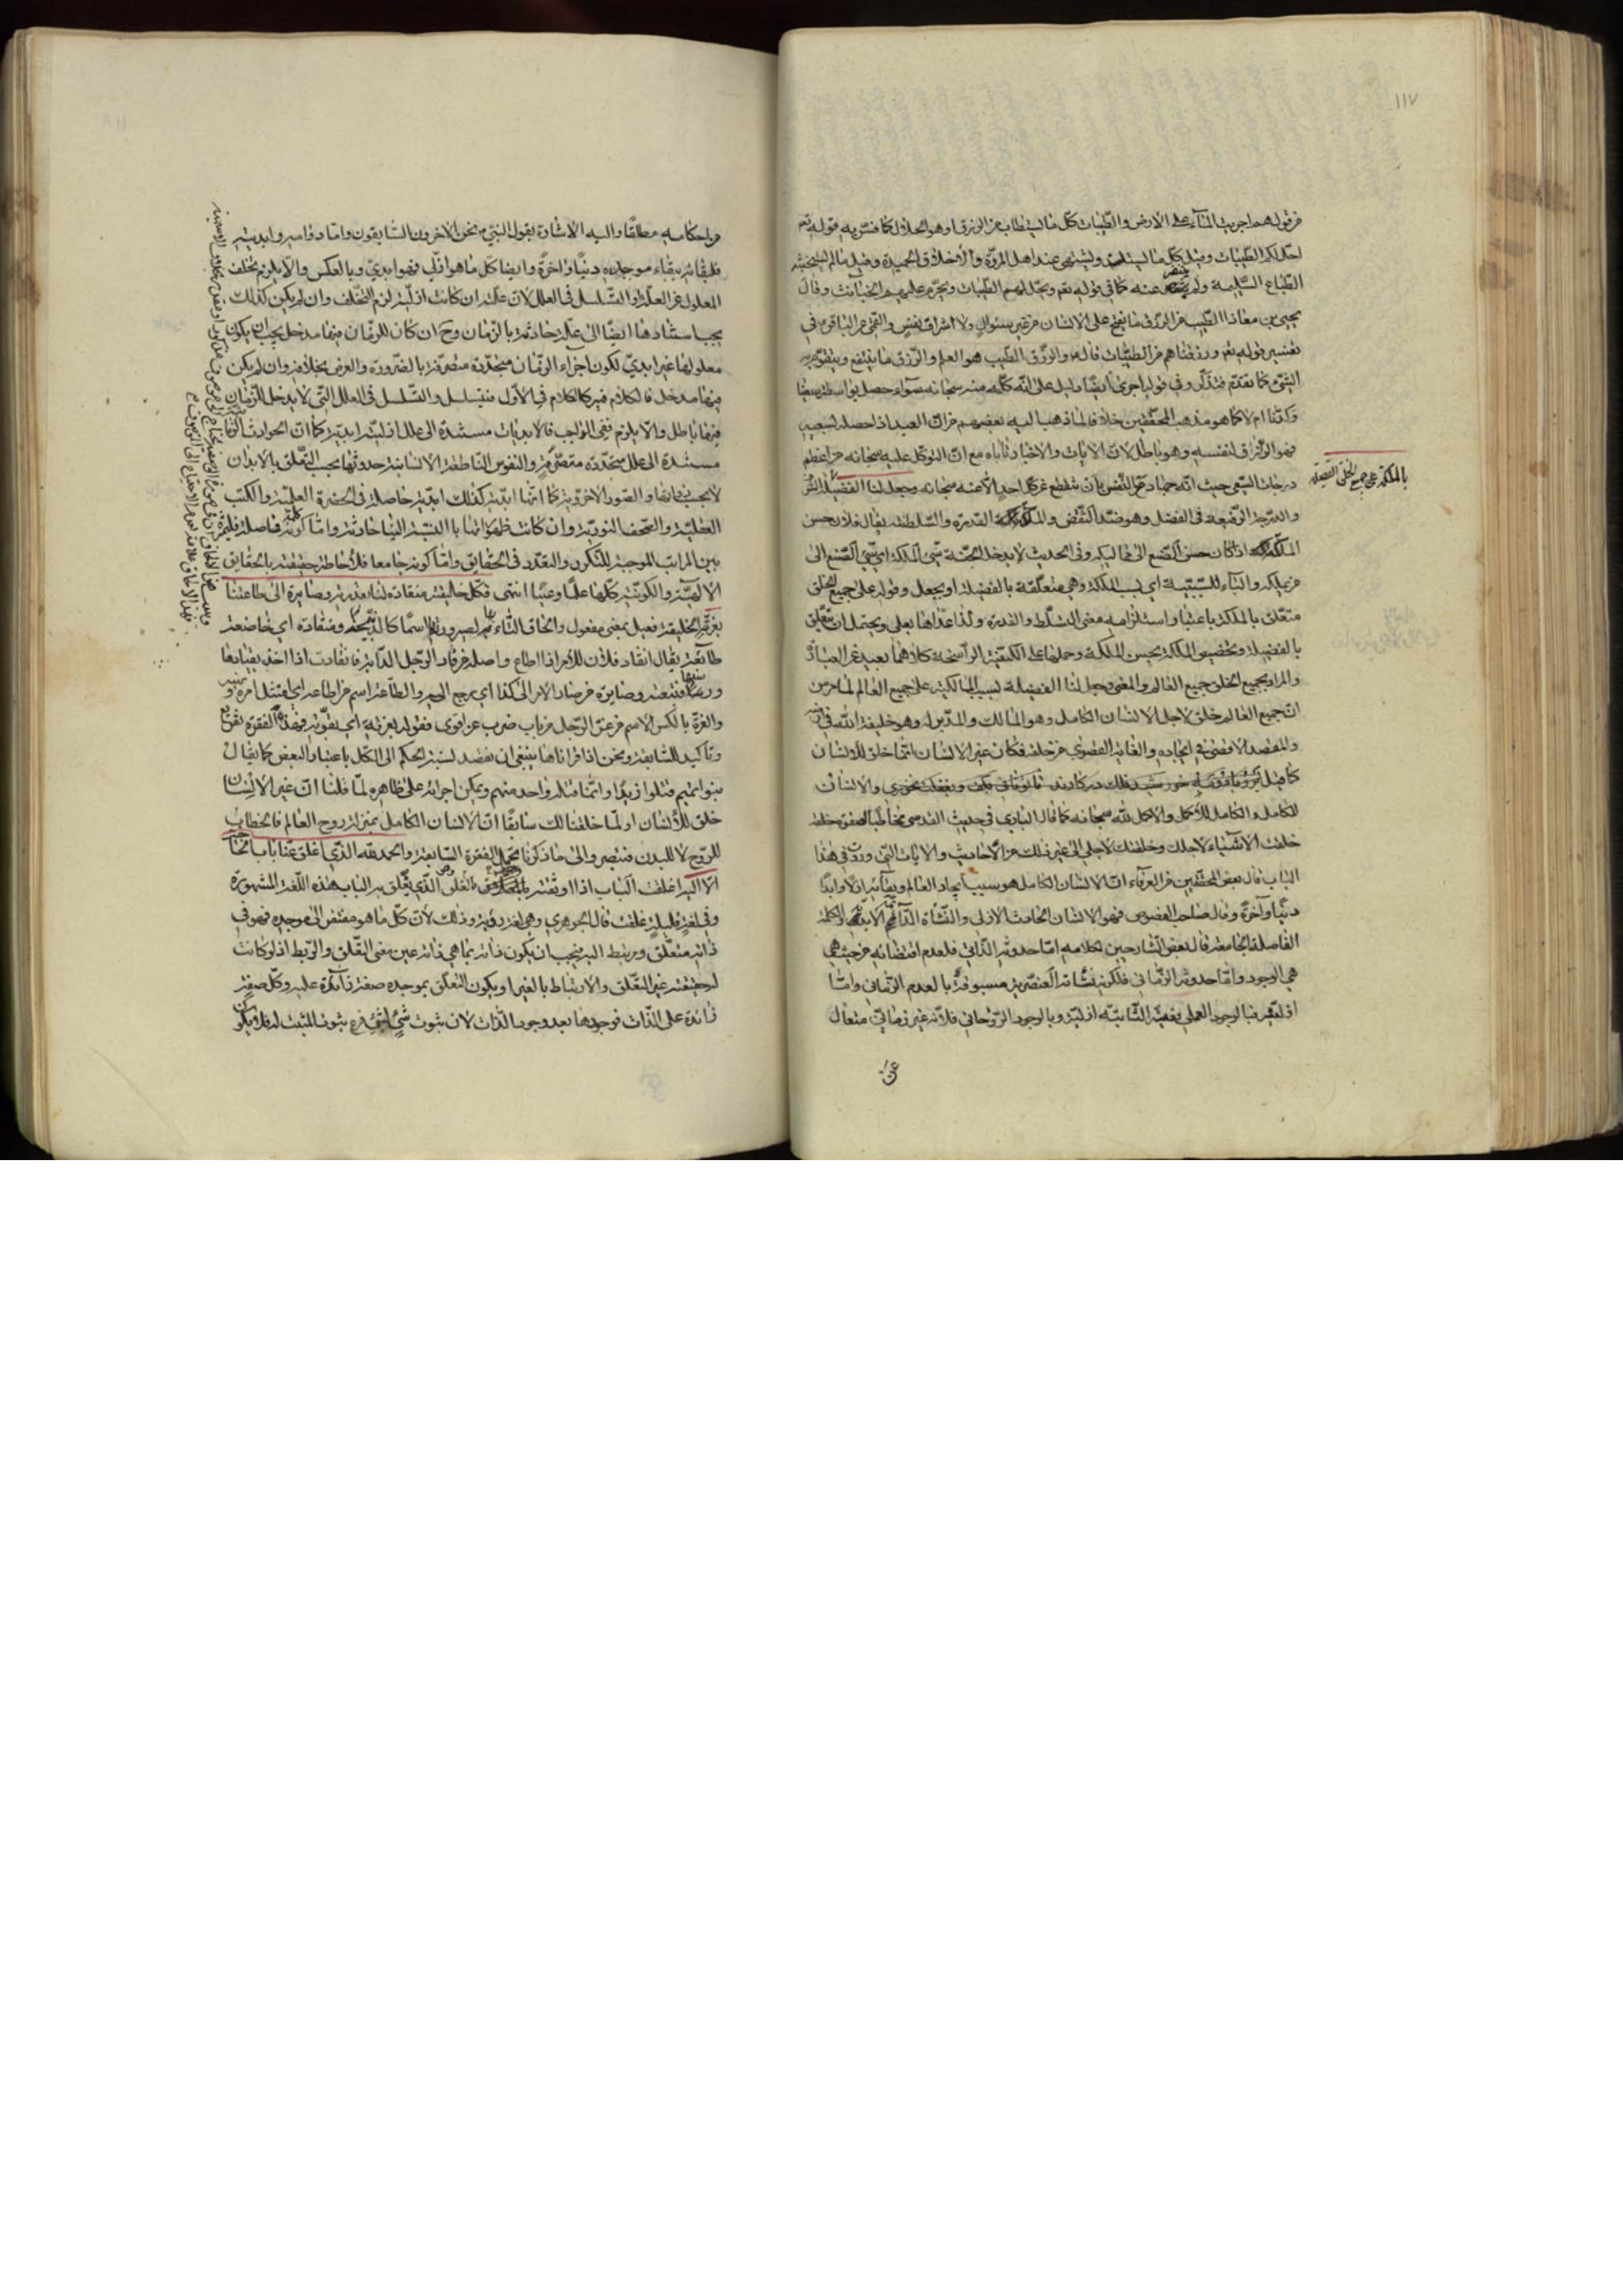 ١١٧
من قولهم اجريت الماء على الارض والطيبات كل ما يستطاب من الرزق او هو الحلال كما فسر به قوله تعم
احل لكم الطيبات وقيل كل ما يستلذ ويشتهى عند اهل المروة والأخلاق الحميدة وقيل مالم يستخبثه
الطباع السليمة ولم ينفر عنه كما في قوله تعم ويحل لهم الطيبات ويحرم عليهم الخبائث وقال
يحيى بن معاذ الطيب من الرزق ما يفتح على الانسان من غير سؤال ولا اشراف نفس والقمي عن الباقر ع في
تفسير قوله تعم ورزقناهم من الطيبات قال والرزق الطيب هو العلم والرزق ما ينتفع ويتقوم به
الشيء كما تقدم فتذكر وفي قوله اجرى لنا ايضا دليل على انه كله منه سبحانه سواء حصل بواسطة سعينا
وكدنا ام لا كما هو مذهب المحققين خلافا لما ذهب اليه بعضهم من ان العبد اذ حصله بسعيه
فهو الرزاق لنفسه وهو باطل لان الايات والاخبار تاباه مع ان التوكل عليه سبحانه من اعظم
درجات السعي حيث انه جهاد مع النفس بأن تنقطع عن كل احد الا عنه سبحانه وجعل لنا الفضيلة
بالملكة على جميع الخلق الفضيلة
والدرجة الرفيعة في الفضل وهو ضد النقص والملكة القدرة والسلطنة يقال فلان حسن
الملكة اذا كان حسن الصنع الى مماليكه وفي الحديث لا يدخل الجنة سيئ الملكة اي سيئ الصنع الى
من يملكه والباء للسببية اي بسبب الملكة وهي متعلقة بالفضيلة او بجعل وقوله على جميع الخلق
متعلق بالملكة باعتبار استلزامه معنى التسلط والقدرة ولذا عداها بعلى ويحتمل ان تتعلق
بالفضيلة وتخصيص الملكة بحسن الملكة وحملها على الكيفية الراسخة كلاهما بعيد عن العبارة
والمراد بجميع الخلق جميع العالم والمعنى وجعل لنا الفضيلة بسبب المالكية على جميع العالم لما مر من
ان جميع العالم خلق لاجل الانسان الكامل وهو المالك والمدبر له وهو خليفة الله في ارضه
والمقصد الاقصى في ايجاده والغاية القصوى من خلقه فكان غير الانسان انما خلق للأنسان
كما قيل ابر وباد ومه خورشيد فلك در كارند تا تو نانى بكف و بغفلت نخورى والانسان
للكامل والكامل للأكمل والاكمل لله سبحانه كما قال الباري في حديث القدسي مخاطبا لصفوة خلقه
خلقت الأشياء لاجلك وخلقتك لاجلي الى غير ذلك من الأحاديث والايات التي وردت في هذا
الباب قال بعض المحققين من العرفاء ان الانسان الكامل هو سبب ايجاد العالم وبقائه ازلا وابدا
دنيا وآخرة وقال صاحب الفصوص فهو الانسان الحادث الازلي والنشأة الدائم الابدي والكلمة
الفاصلة الجامعة قال بعض الشارحين لكلامه اما حدوثه الذاتي فلعدم اقتضائه من حيث هي
هي الوجود واما حدوثه الزماني فلكون نشأته العنصرية مسبوقة بالعدم الزماني واما
ازليته فبالوجود العلمي فعينه الثابتة ازلية وبالوجود الروحاني فلانه غير زماني متعال
عن
واحكامه مطلقا واليه الأشارة بقول النبي ص نحن الاخرون السابقون واما دوامه وابديته
فلبقائه ببقاء موجده دنيا واخرة وايضا كل ما هو ازلي فهو ابدي وبالعكس والا يلزم تخلف
المعلول عن العلة او التسلسل في العلل لان علته ان كانت ازلية لزم التخلف وان لم يكن كذلك
يجب استنادها ايضا الى علة حادثة بالزمان وح ان كان للزمان فيها مدخل يجب ان يكون
معلولها غير ابدي لكون اجزاء الزمان متجددة متصرمة بالضرورة والفرض بخلافه وان لم يكن
فيها مدخل فالكلام فيه كالكلام في الأول فيتسلسل والتسلسل في العلل التي لا يدخل للزمان
فيها باطل والا يلزم نفي الواجب فالابديات مستندة الى علل ازلية ابدية كما ان الحوادث الزمانية
مستندة الى علل متجددة متصرمة والنفوس الناطقة الانسانية حدوثها بحسب التعلق بالابدان
لا بحسب ذواتها والصور الاخروية كما انها ابدية كذلك ازلية حاصلة في الحضرة العلمية والكتب
العقلية والصحف النورية وان كانت ظهوراتها بالنسبة الينا حادثة واما كونه كلمة فاصلة فلتميزه
بين المراتب الموجبة للتكثر والتعدد في الحقايق واما كونه جامعا فلأحاطة حقيقته بالحقايق
الالهية والكونية كلها علما وعينا انتهى فكل خليقته منقادة لنا بقدرته وصايرة الى طاعتنا
بعزته الخليقة فعيل بمعنى مفعول والحاق التاء به لصيرورته اسما كالذبيحة ومنقادة اي خاضعة
طايعة يقال انقاد فلان للأمر اذا اطاع واصله من قاد الرجل الدابة فانقادت اذا اخذ بقيادها
فتبعته وصايرة من صار الامر الى كذا اي يرجع اليه والطاعة اسم من اطاعه اي امتثل امره
والعزة بالكسر الاسم من عز الرجل من باب ضرب عز اقوى فقوله بعزته اي بقوته فهذه الفقرة تفريع
وتأكيد للسابقة ونحن اذا قرأناها ينبغي ان نقصد نسبة الحكم الى الكل باعتبار البعض كما يقال
بنو تميم قتلوا زيدا وانما قتله واحد منهم ويمكن اجرائه على ظاهره لما قلنا ان غير الأنسان
خلق للأنسان او لما خلقنا لك سابقا ان الانسان الكامل بمنزلة روح العالم فالخطاب
للروح لا للبدن فتبصر والى ما ذكرنا يحمل الفقرة السابقة والحمد لله الذي اغلق عنا باب الحاجة
الا اليه اغلقت الباب اذا اوثقته بالغلق الذي يغلق به الباب هذه اللغة المشهورة
وفي لغة قليلة غلقت قال الجوهري وهي لغة ردية وذلك لأن كل ما هو مفتقر الى موجده فهو في
ذاته متعلق ومرتبط اليه فيجب ان يكون ذاته بما هي ذاته عين معنى التعلق والربط اذ لو كانت
له حقيقة غير التعلق والارتباط بالغير ويكون التعلق بموجده صفة زائدة عليه وكل صفة
زائدة على الذات فوجودها بعد وجود الذات لان ثبوت شيء لشيء فرع ثبوت المثبت له فلا يكون